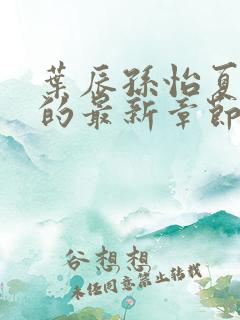 葉辰孫怡夏
的最新章節
谷想想
未经同意禁止转载